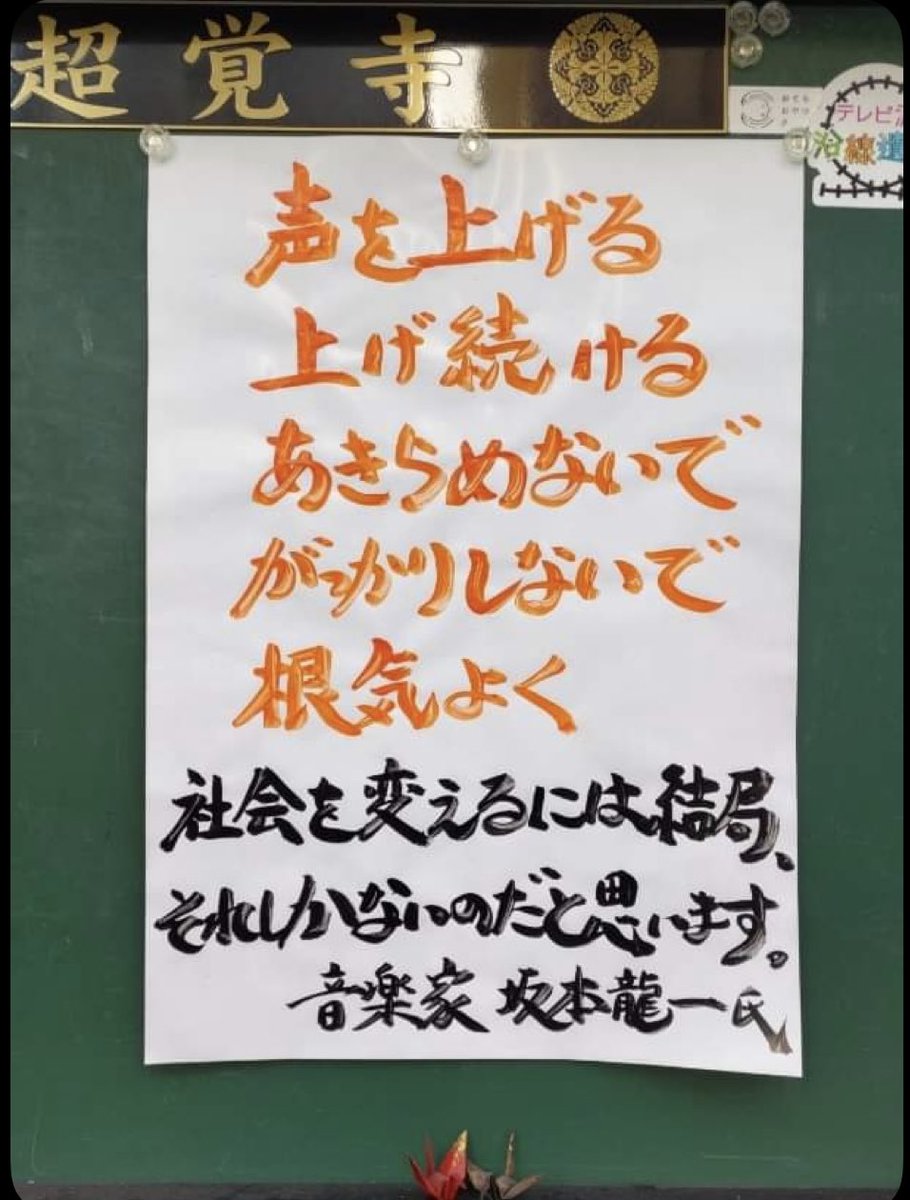 超覚寺
テレビ
沿線遺
声を上げる
上げ続ける
あきらめないで
がっかりしないで
根気よく
社会を変えるには結局、
それしかないのだと思います。
音楽家 坂本龍一氏